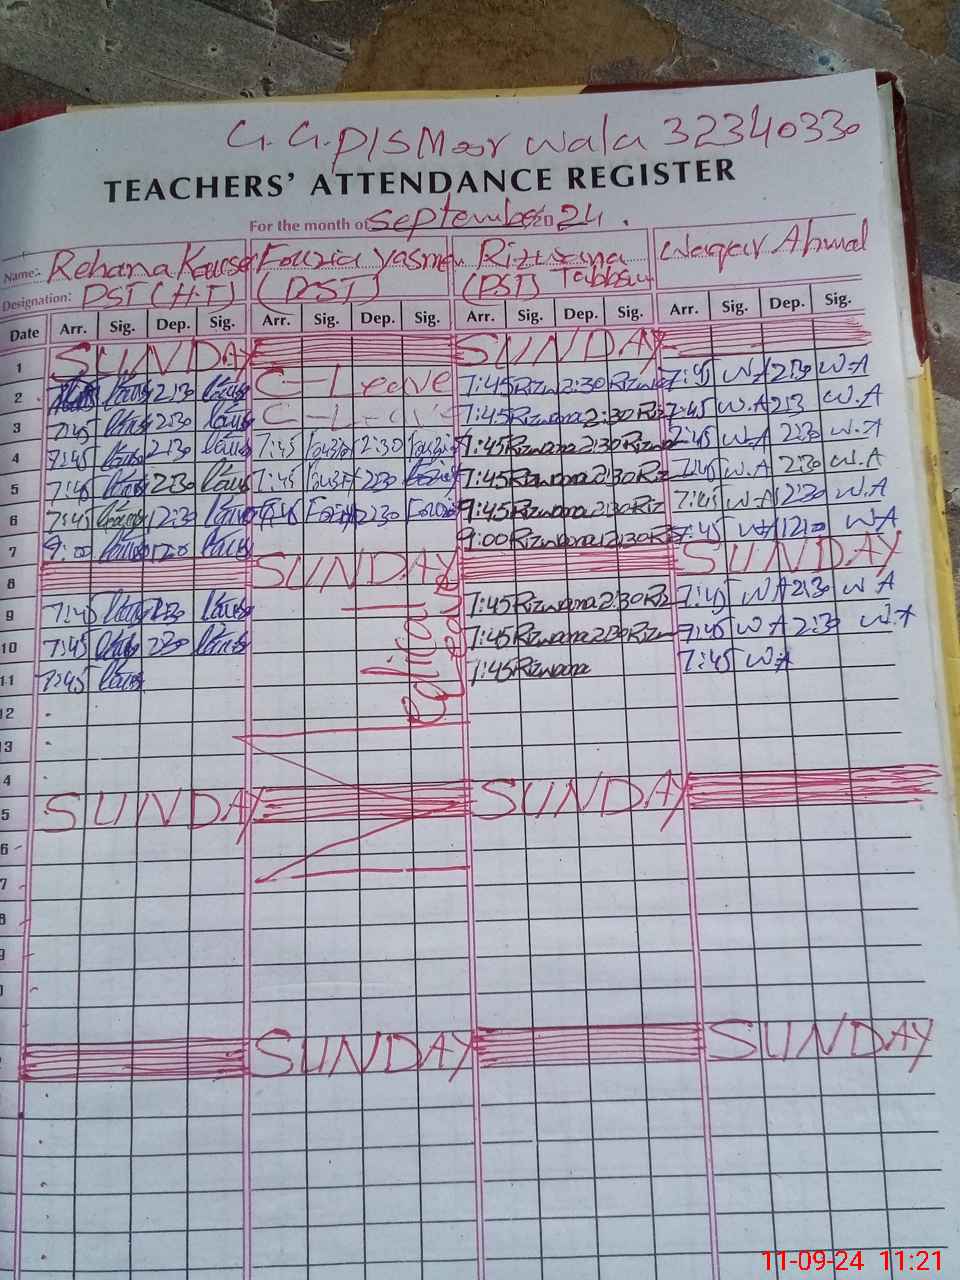 G. G. P/S Moor wala 32340330
TEACHERS' ATTENDANCE REGISTER
For the month of September 20 24.
Name:- Rehana Kausar Fouzia Yasmen Rizwana Tabbsum Waqar Ahmad
Designation: PST (H.T) (PST) (PST)
Date Arr. Sig. Dep. Sig. Arr. Sig. Dep. Sig. Arr. Sig. Dep. Sig. Arr. Sig. Dep. Sig.
1 SUNDAY SUNDAY
2 2:30 C-Leave 7:45 Rizwana 2:30 Rizwana 7:45 W.A 2:30 W.A
3 7:45 2:30 C-Leave 7:45 Rizwana 2:30 Riz 7:45 W.A 2:3 W.A
4 7:45 2:30 7:45 Fouzia 2:30 Fouzia 7:45 Rizwana 2:30 Rizwana 7:45 W.A 2:30 W.A
5 7:45 2:30 7:45 Fouzia 2:30 Fouzia 7:45 Rizwana 2:30 Riz 7:45 W.A 2:30 W.A
6 7:45 12:30 7:45 Fouzia 2:30 Fouzia 7:45 Rizwana 2:30 Riz 7:45 W.A 12:30 W.A
7 9:00 9:00 Rizwana 12:30 Riz 7:45 WA WA
8 SUNDAY SUNDAY
9 7:45 2:30 7:45 Rizwana 2:30 Riz 7:45 WA 2:30 W A
10 7:45 2:30 7:45 Rizwana 2:30 Rizwana 7:45 W A 2:30 W.A
11 7:45 7:45 Rizwana 7:45 W.A
12
13
4
5 SUNDAY SUNDAY
6
7
8
9
SUNDAY SUNDAY
11-09-24 11:21